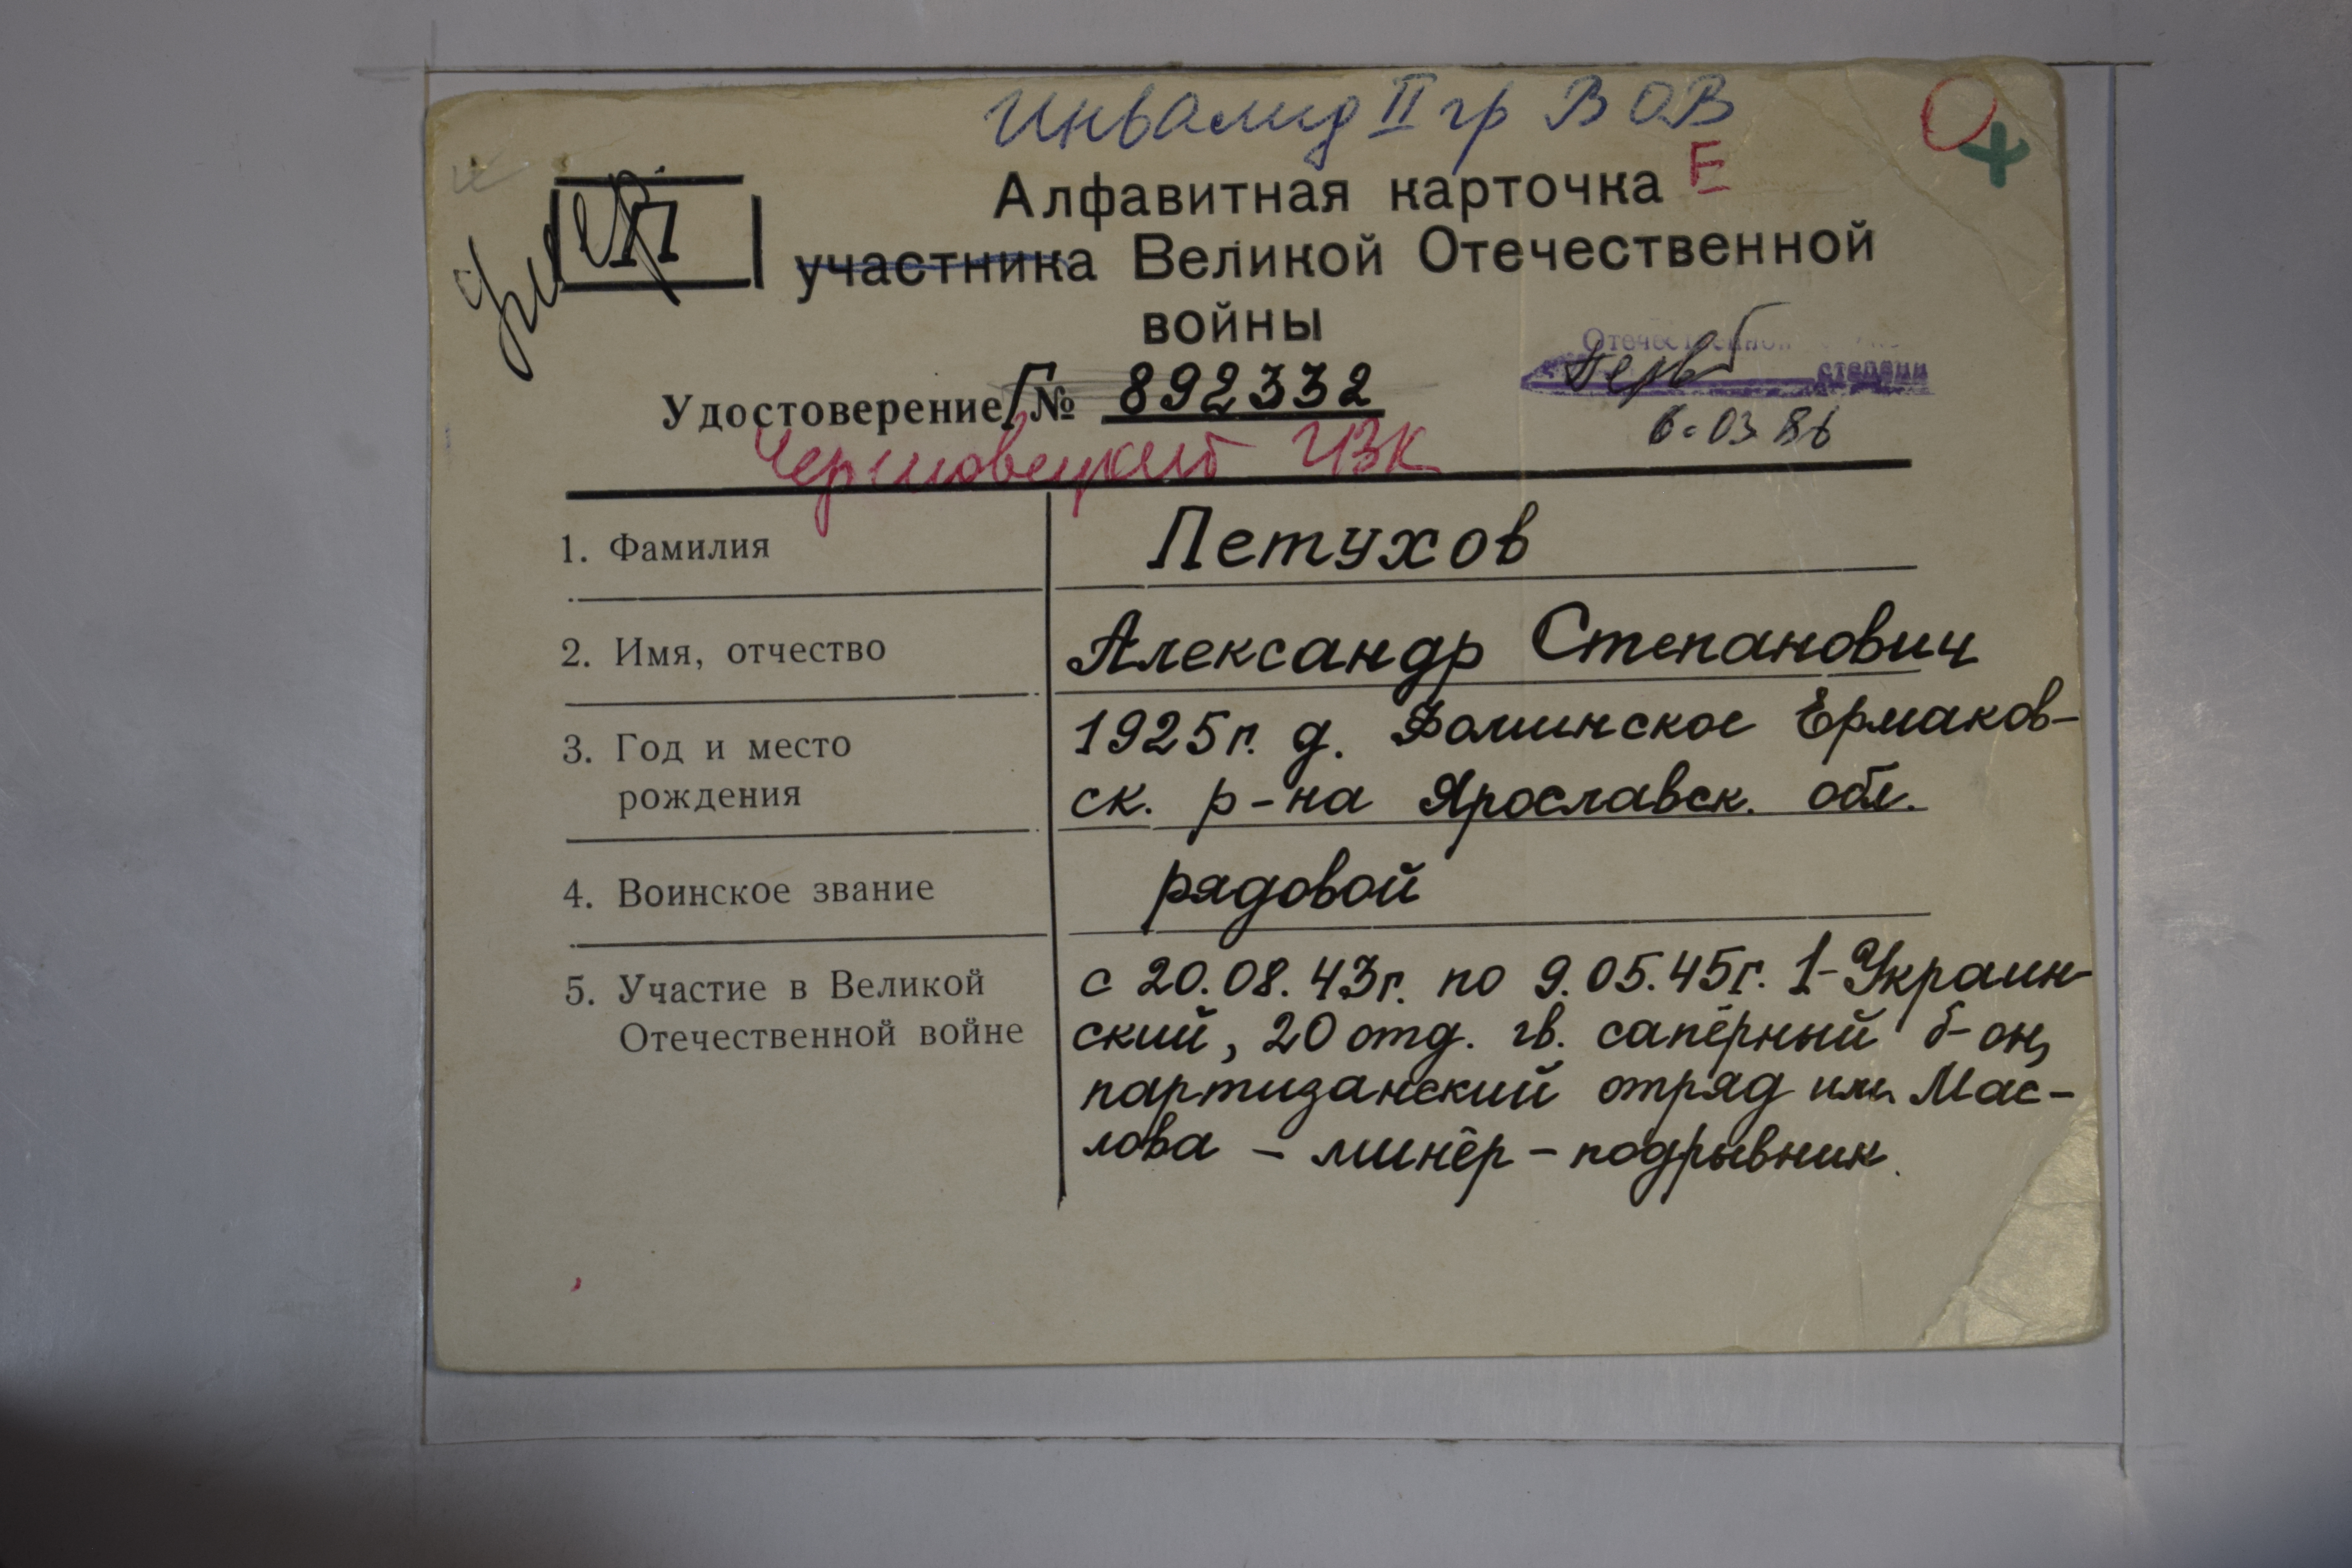 Инвалид II гр ВОВ
Алфавитная карточка Е
участника Великой Отечественной
войны
П
умер
Отечественной
степени
6.03 86
Удостоверение Г № 892332
1. Фамилия Петухов
2. Имя, отчество Александр Степанович
3. Год и место 1925г. д. Фоминское Ермаков-
рождения ск. р-на Ярославск. обл.
4. Воинское звание рядовой
5. Участие в Великой с 20.08.43г. по 9.05.45г. 1-Украин-
Отечественной войне ский, 20 отд. гв. сапёрный б-он,
партизанский отряд им. Мас-
лова – минёр – подрывник.